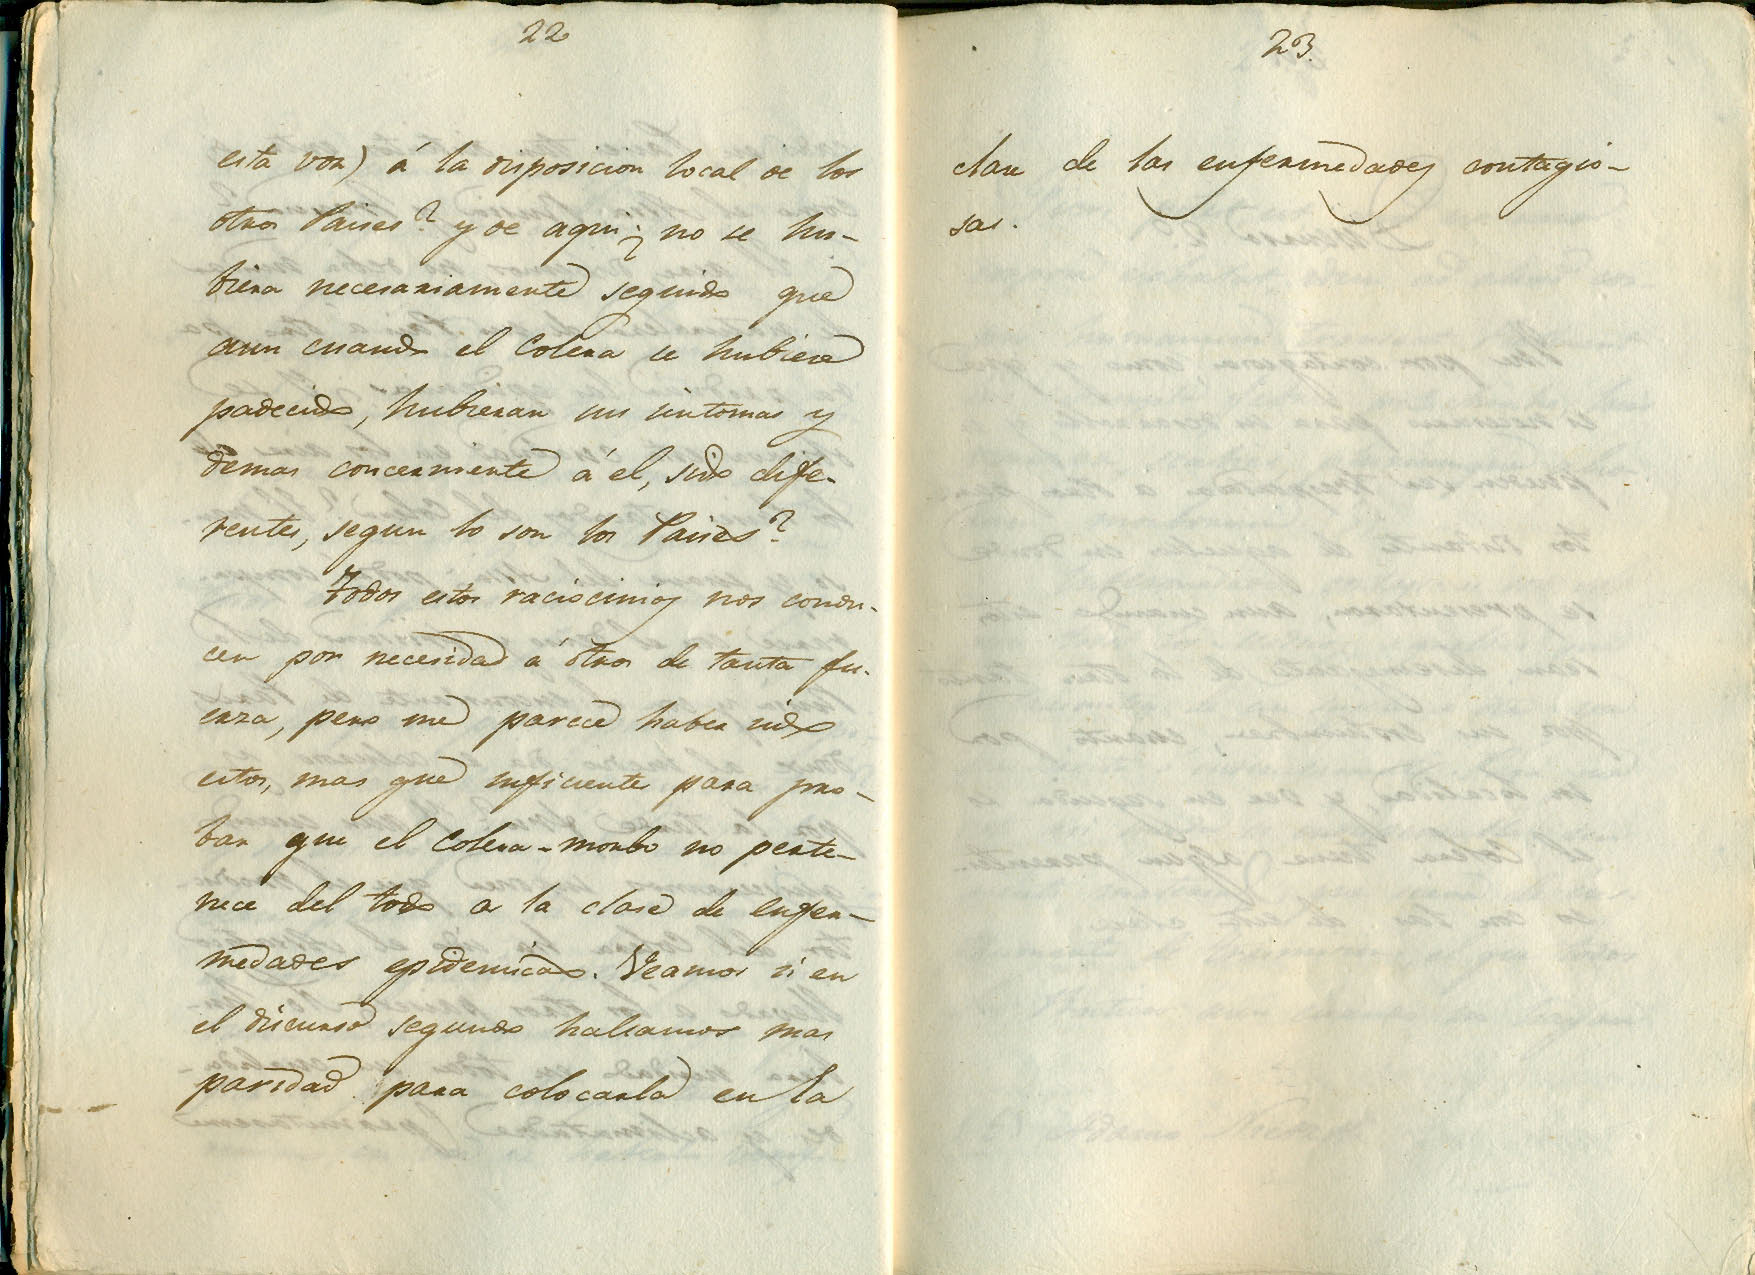 22
esta voz) á la disposicion local de los
otros Paises? y de aqui ¿ no se hu-
biera necesariamente seguido que
aun cuando el Colera se hubiera
padecido, hubieran sus sintomas y
demas concerniente á el, sido dife-
rentes, segun lo son los Paises?
Todos estos raciocinios nos condu-
cen por necesidad á otros de tanta fu-
erza, pero me parece haber sido
estos, mas que suficientes para pro-
bar que el Colera-morbo no perte-
nece del todo a la clase de enfer-
medades epidemicas. Veamos si en
el discurso segundo hallamos mas
paridad para colocarla en la
23.
clase de las enfermedades contagio-
sas.